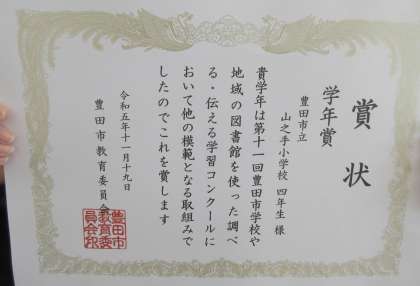 賞状
学年賞
豊田市立
山之手小学校 四年生 様
貴学年は第十一回豊田市学校や
地域の図書館を使った調べ
る・伝える学習コンクールに
おいて他の模範となる取組みで
したのでこれを賞します
令和五年十一月十九日
豊田市教育委員会
豊田市
教育委
員会印